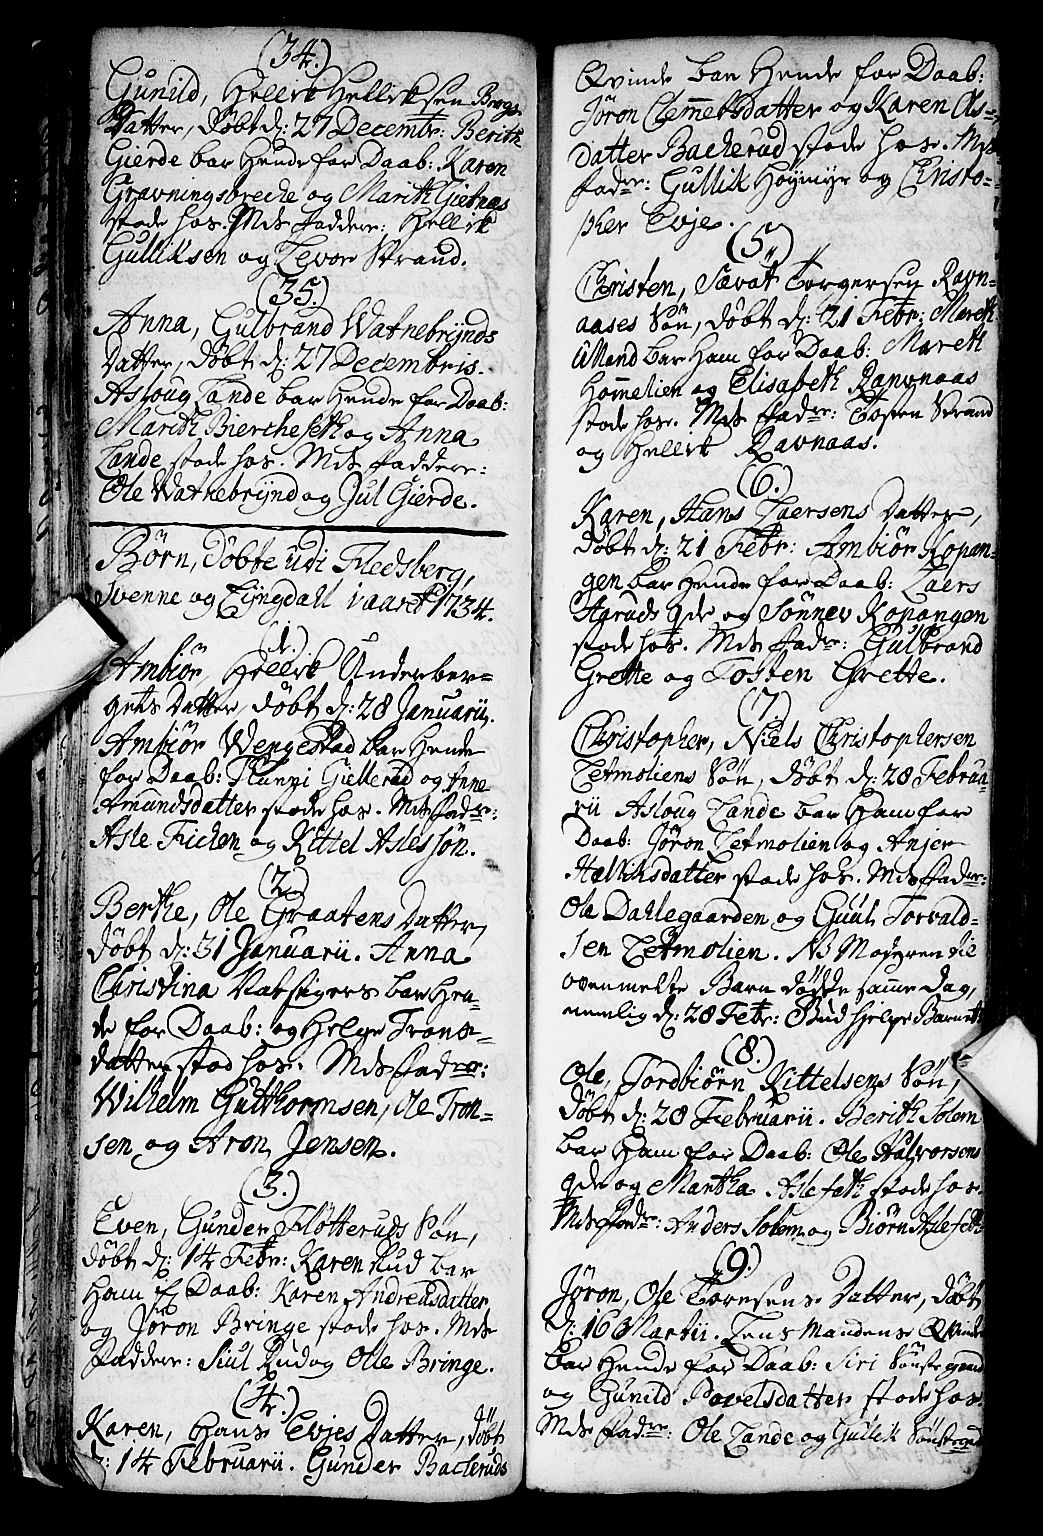 (34.)
Gunild, Hellik Helliksen Bergs
Datter, døbt d: 27 Decembr: Berith
Gierde bar Hende for Daab: Karen
Gravningsbreche og Marith Gietnas
stode hos. Mds Faddere: Hellik
Gulliksen og Tevor Strand.
(35.)
Anna, Gulbrand Watnebrÿnds
Datter, døbt d: 27 Decembris.
Asloug Lande bar Hende for Daab:
Marith Biercheseth og Anna
Lande stode hos. Mds Faddere:
Ole Watnebrÿnd og Jul Gierde.
Børn, døbte udi Fledsberg,
Svenne og Lÿngdall i aaret 1734.
(1.)
Ambiør, Hellik Underber-
gets Datter, døbt d: 28 Januarii,
Ambiør Wengestad bar Hende
for Daab: Giellerud og Anne
Amundsdatter stode hos. Mds fadre:
Asle Fichen og Kittel Aslessøn.
(2.)
Berthe, Ole Graatens Datter,
døbt d: 31 Januarii. Anna
Christina bar Hen-
de for Daab: og Helge Trons-
datter stod hos. Mds fadre:
Wilhelm Guthormsen, Ole Tron-
sen og Aron Jensen.
(3.)
Even, Gunder Fløtteruds Søn,
døbt d: 14 Febr: Karen Rud bar
Ham f Daab: Karen Andreasdatter
og Jøron Bringe stode hos. Mds
Faddere: Siul Rud og Ole Bringe.
(4.)
Karen, Hans Evjes Datter, døbt
d: 14 Februarii. Gunder Bacheruds
Qvinde bar Hende for Daab:
Jøron Clem̄etsdatter og Karen As-
datter Bacherud stode hos. Mds
fadre: Gullik Høymyr og Christo-
pher Evje.
(5.)
Christen, Torgersen Ravn-
aases Søn, døbt d: 21 Febr: Mareth
AMand bar Ham for Daab: Mareth
Hom̄elien og Elisabeth Ravnaas
stode hos. Mds fadre: Tosten Strand
og Hellik Ravnaas.
(6.)
Karen, Hans Laersens Datter,
døbt d: 21 Febr: Ambiør Kopan-
gen bar Hende for Daab: Laers
Haruds Qde og Sønnev Kopangen
stode hos. Mds fadr: Gulbrand
Grette og Tosten Grette.
(7.)
Christopher, Niels Christophersen
Tetmoliens Søn, døbt d: 28 Februa-
rii Asloug Lande bar Ham for
Daab: Jøron Tetmolien og Anjer
Halliksdatter stode hos. Mds fadre:
Ola Dahlegaarden og Guul Torvald-
sen Tetmolien. NB Moderen til
ovenmelte Barn døde samme dag,
nemlig d: 28 Febr: Gud hjelpe Barnet
(8.)
Ole, Tordbiørn Kittelsens Søn,
døbt d: 28 Februarii. Berith Solem
bar Ham for Daab: Ole Halvorsens
Qde og Martha Aslefeth stode hos.
Mds fadre: Anders Solem og Biørn Aslefeth
(9.)
Jøron, Ole Toresens Datter, døbt
d: 16 Martii. Lens Mandens Qvinde
bar Hende for Daab: Siri Sønste gaard
og Gunild Povelsdatter stode hos
Mds fadre: Ole Lande og Gullik Sønstegaard